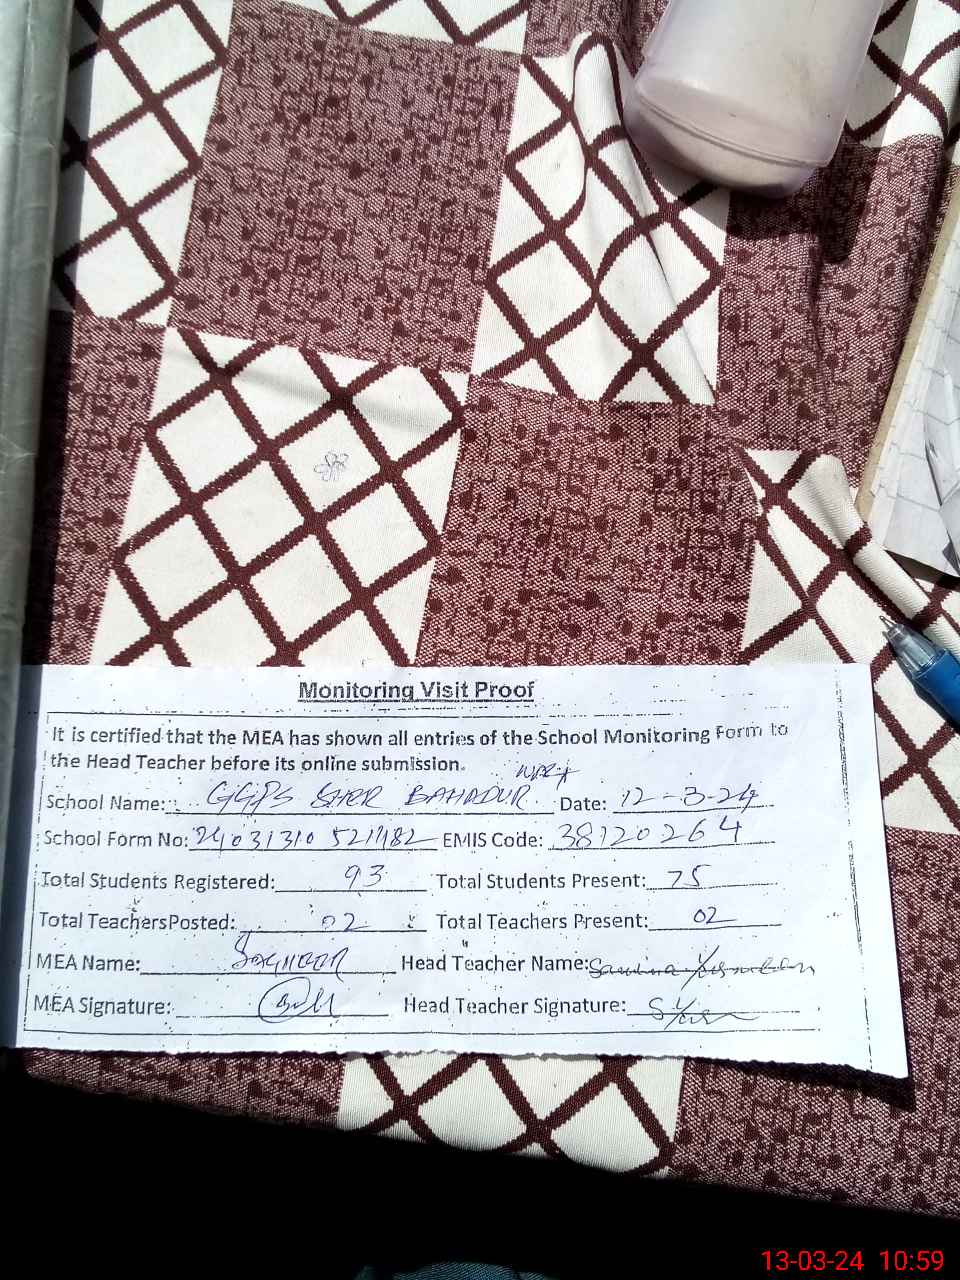 Monitoring Visit Proof
It is certified that the MEA has shown all entries of the School Monitoring Form to
the Head Teacher before its online submission.
School Name: GGPS SHER BAHADUR Date: 12-3-24
School Form No: EMIS Code: 38120264
Total Students Registered: 93 Total Students Present: 75
Total TeachersPosted: 02 Total Teachers Present: 02
MEA Name: Head Teacher Name:
MEA Signature: Head Teacher Signature:
13-03-24 10:59